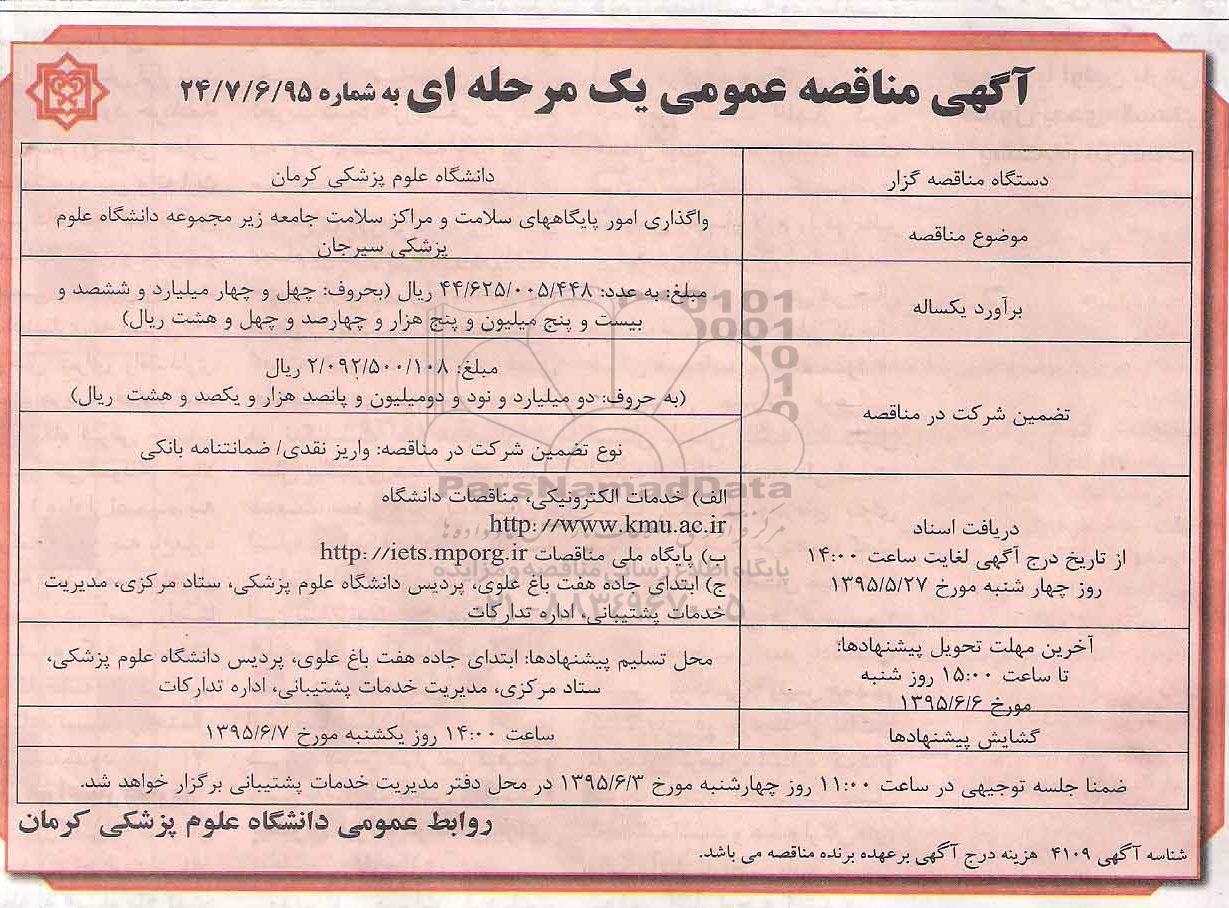 آگهی مناقصه عمومی یک مرحله ای به شماره ۲۴/۷/۶/۹۵
دستگاه مناقصه گزار
دانشگاه علوم پزشکی کرمان
موضوع مناقصه
واگذاری امور پایگاههای سلامت و مراکز سلامت جامعه زیر مجموعه دانشگاه علوم
پزشکی سیرجان
برآورد یکساله
مبلغ: به عدد: ۴۴/۶۲۵/۰۰۵/۴۴۸ ریال (بحروف: چهل و چهار میلیارد و ششصد و
بیست و پنج میلیون و پنج هزار و چهارصد و چهل و هشت ریال)
تضمین شرکت در مناقصه
مبلغ: ۲/۰۹۲/۵۰۰/۱۰۸ ریال
(به حروف: دو میلیارد و نود و دومیلیون و پانصد هزار و یکصد و هشت ریال)
نوع تضمین شرکت در مناقصه: واریز نقدی/ ضمانتنامه بانکی
دریافت اسناد
از تاریخ درج آگهی لغایت ساعت ۱۴:۰۰
روز چهار شنبه مورخ ۱۳۹۵/۵/۲۷
الف) خدمات الکترونیکی، مناقصات دانشگاه
http://www.kmu.ac.ir
ب) پایگاه ملی مناقصات http://iets.mporg.ir
ج) ابتدای جاده هفت باغ علوی، پردیس دانشگاه علوم پزشکی، ستاد مرکزی، مدیریت
خدمات پشتیبانی، اداره تدارکات
آخرین مهلت تحویل پیشنهادها:
تا ساعت ۱۵:۰۰ روز شنبه
مورخ ۱۳۹۵/۶/۶
محل تسلیم پیشنهادها: ابتدای جاده هفت باغ علوی، پردیس دانشگاه علوم پزشکی،
ستاد مرکزی، مدیریت خدمات پشتیبانی، اداره تدارکات
گشایش پیشنهادها
ساعت ۱۴:۰۰ روز یکشنبه مورخ ۱۳۹۵/۶/۷
ضمنا جلسه توجیهی در ساعت ۱۱:۰۰ روز چهارشنبه مورخ ۱۳۹۵/۶/۳ در محل دفتر مدیریت خدمات پشتیبانی برگزار خواهد شد.
روابط عمومی دانشگاه علوم پزشکی کرمان
شناسه آگهی ۴۱۰۹ هزینه درج آگهی برعهده برنده مناقصه می باشد.
ParsNamadData
پایگاه اطلاع رسانی مناقصه و مزایده